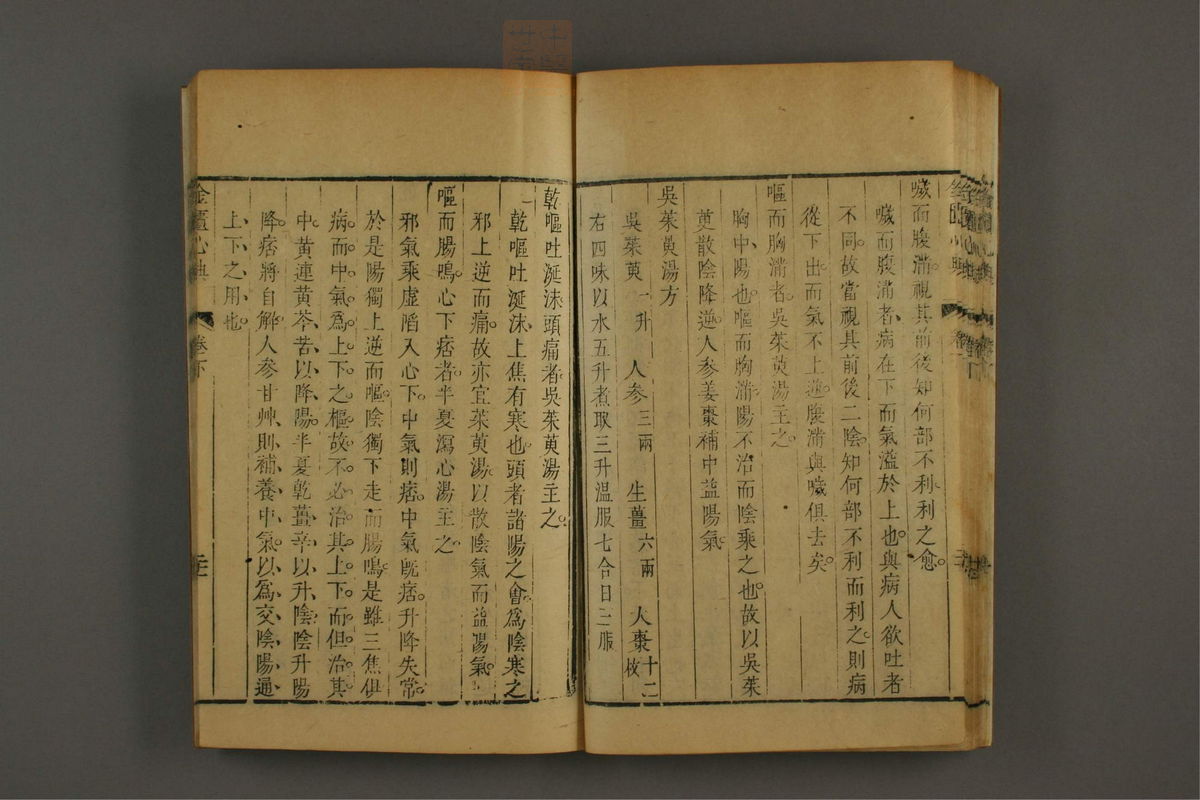 噦而腹滿視其前後知何部不利利之愈
噦而腹滿者病在下而氣溢於上也與病人欲吐者
不同故當視其前後二陰知何部不利而利之則病
從下出而氣不上逆腹滿與噦俱去矣
嘔而胸滿者吳茱萸湯主之
胸中陽也嘔而胸滿陽不治而陰乘之也故以吳茱
萸散陰降逆人參姜棗補中益陽氣
吳茱萸湯方
吳茱萸一升 人參三兩 生薑六兩 大棗十二枚
右四味以水五升煮取三升溫服七合日三服
乾嘔吐涎沫頭痛者吳茱萸湯主之
乾嘔吐涎沫上焦有寒也頭者諸陽之會為陰寒之
邪上逆而痛故亦宜茱萸湯以散陰氣而益陽氣
嘔而腸鳴心下痞者半夏瀉心湯主之
邪氣乘虛陷入心下中氣則痞中氣既痞升降失常
於是陽獨上逆而嘔陰獨下走而腸鳴是雖三焦俱
病而中氣為上下之樞故不必治其上下而但治其
中黃連黃芩苦以降陽半夏乾薑辛以升陰陰升陽
降痞將自解人參甘艸則補養中氣以為交陰陽通
上下之用也
金匱心典 卷下